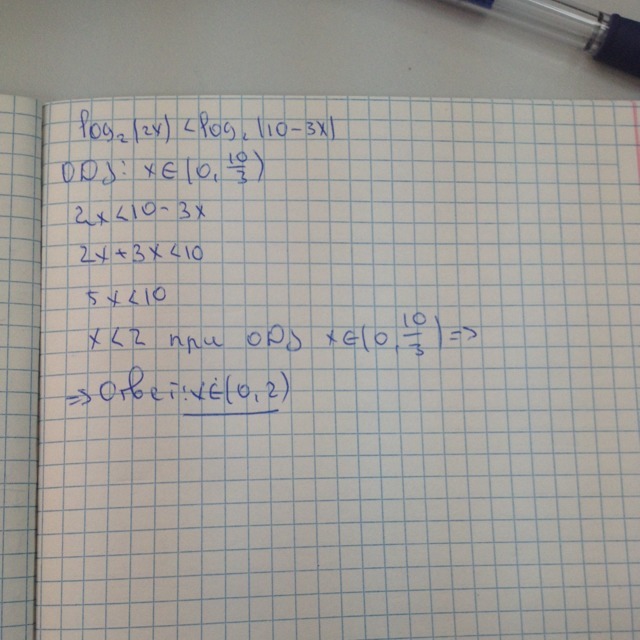 log₂(2x) < log₂(10-3x)
ОДЗ: x∈(0, 10/3)
2x<10-3x
2x+3x<10
5x<10
x<2 при ОДЗ x∈(0, 10/3) =>
=> Ответ: x∈(0,2)